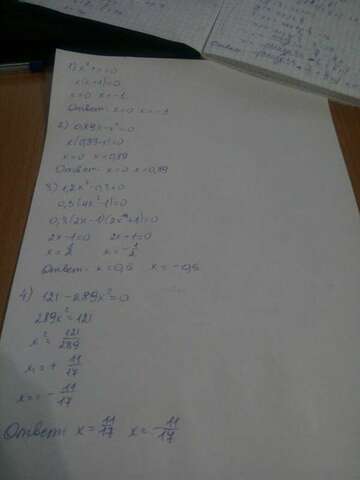 1) x²+x=0
x(x+1)=0
x=0 x=-1
Ответ: x=0 x=-1
2) 0,89x-x²=0
x(0,89-x)=0
x=0 x=0,89
Ответ: x=0 x=0,89
3) 1,2x²-0,3=0
0,3(4x²-1)=0
0,3(2x-1)(2x+1)=0
2x-1=0 2x+1=0
x=1/2 x=-1/2
Ответ: x=0,5 x=-0,5
4) 121-289x²=0
289x²=121
x²=121/289
x₁=+11/17
x=-11/17
Ответ: x=11/17 x=-11/17